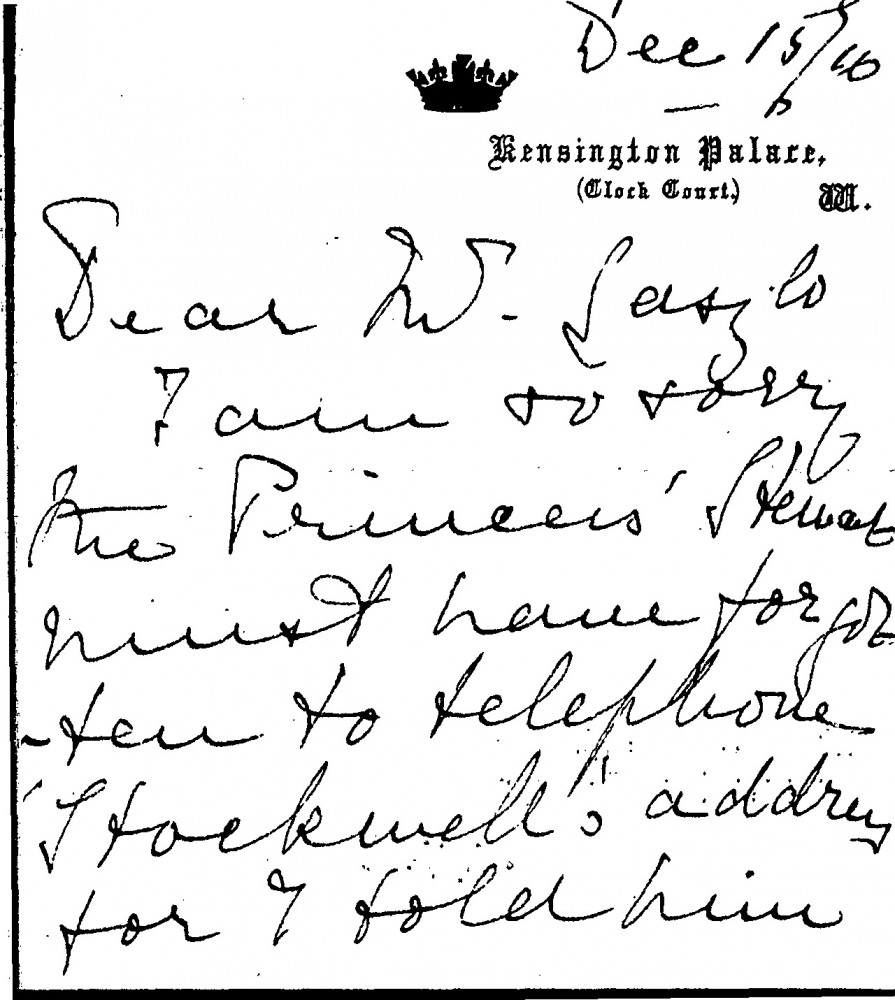 Dec 15/16
Kensington Palace,
(Clock Court.)
W.
Dear Mr. Laszlo
I am so sorry
the Princess' Steward
must have forgot
-ten to telephone
'Stockwell's address
for I told him